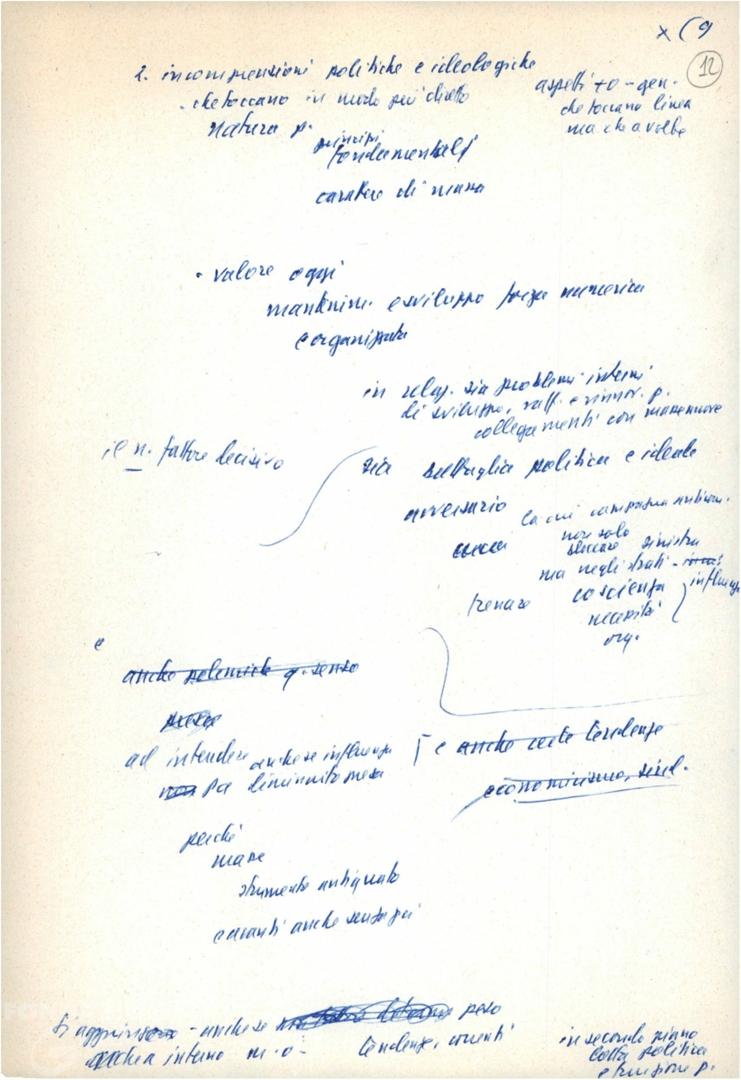 x (9
12
2. incomprensioni politiche e ideologiche
- che toccano in modo più diretto
natura p.
aspetti + o - gen.
che toccano linea
ma che a volte
principi
fondamentali
carattere di massa
- valore oggi
mantenim. e sviluppo forza numerica
e organizzata
in relaz. sia problemi interni
di sviluppo, raff. e rinnov. p.
collegamenti con masse nuove
il n. fattore decisivo
sia battaglia politica e ideale
avversario
la cui campagna anticom.
non solo
staccare sinistra
ma negli strati - influenza
frenare coscienza
necessità
org.
e
anche polemiche q. senso
ad intendere anche se influenza
non Pa diminuito
perché
masse
strumento antiquato
e avanti anche senza più
[ e anche certe tendenze
economicismo, sind.
si aggiun - anche se peso
anche a interno m. o. - tendenze, correnti
in secondo piano
lotta politica
e funzione p.